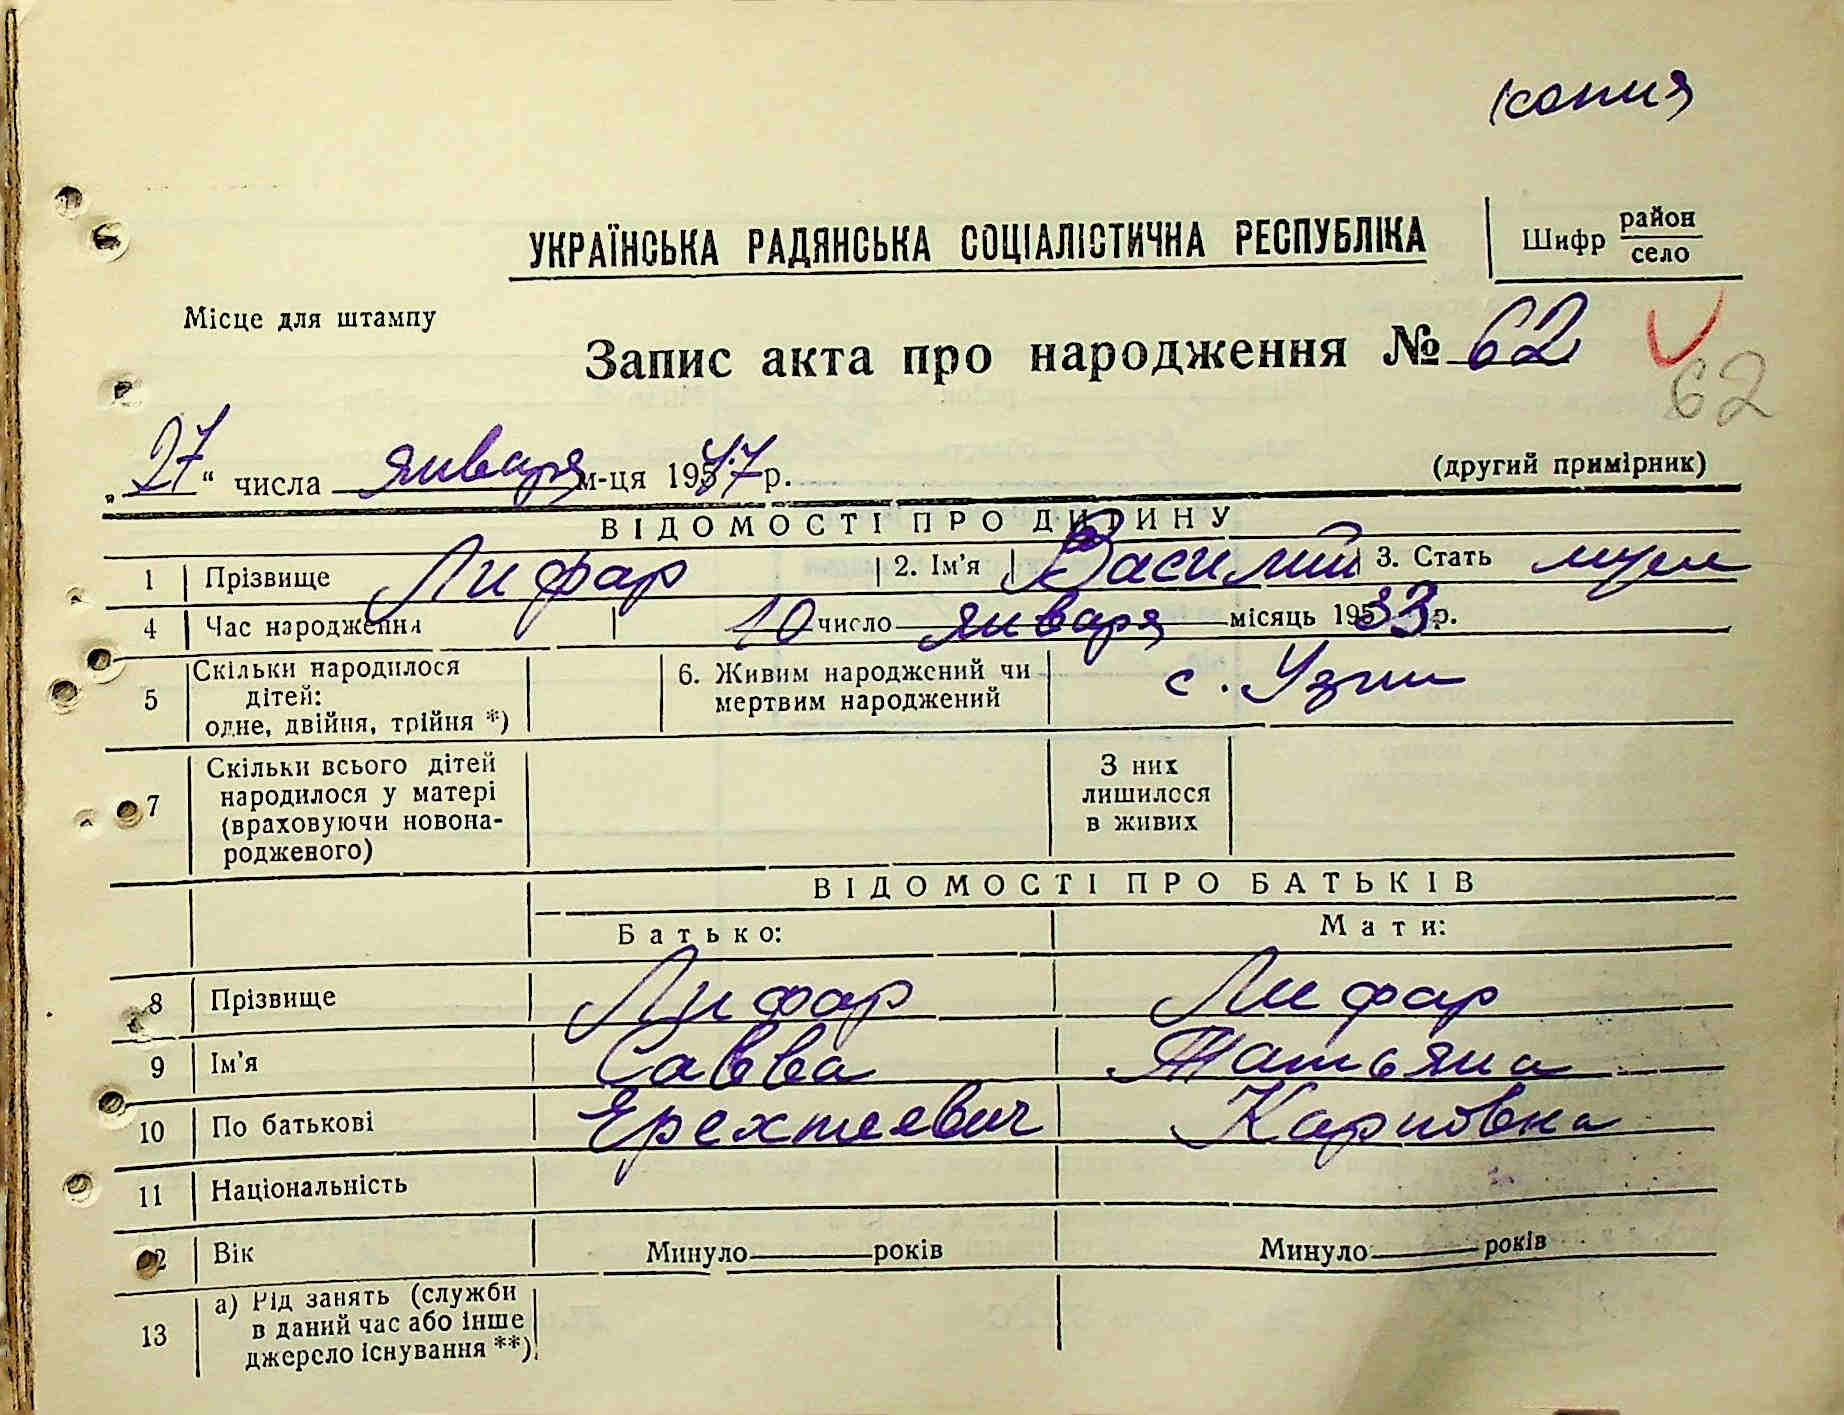 копия
УКРАЇНСЬКА РАДЯНСЬКА СОЦІАЛІСТИЧНА РЕСПУБЛІКА
Шифр район
село
Місце для штампу
Запис акта про народження № 62
62
„27“ числа января м-ця 1947 р.
(другий примірник)
ВІДОМОСТІ ПРО ДИТИНУ
1 Прізвище Лифар 2. Ім'я Василий 3. Стать муж
4 Час народження 10 число января місяць 1933 р.
5 Скільки народилося дітей: одне, двійня, трійня *) 6. Живим народжений чи мертвим народжений с. Узин
7 Скільки всього дітей народилося у матері (враховуючи новонародженого) З них лишилося в живих
ВІДОМОСТІ ПРО БАТЬКІВ
Батько: Мати:
8 Прізвище Лифар Лифар
9 Ім'я Савва Татьяна
10 По батькові Ерехтеевич Карповна
11 Національність
12 Вік Минуло років Минуло років
13 а) Рід занять (служби в даний час або інше джерело існування **)